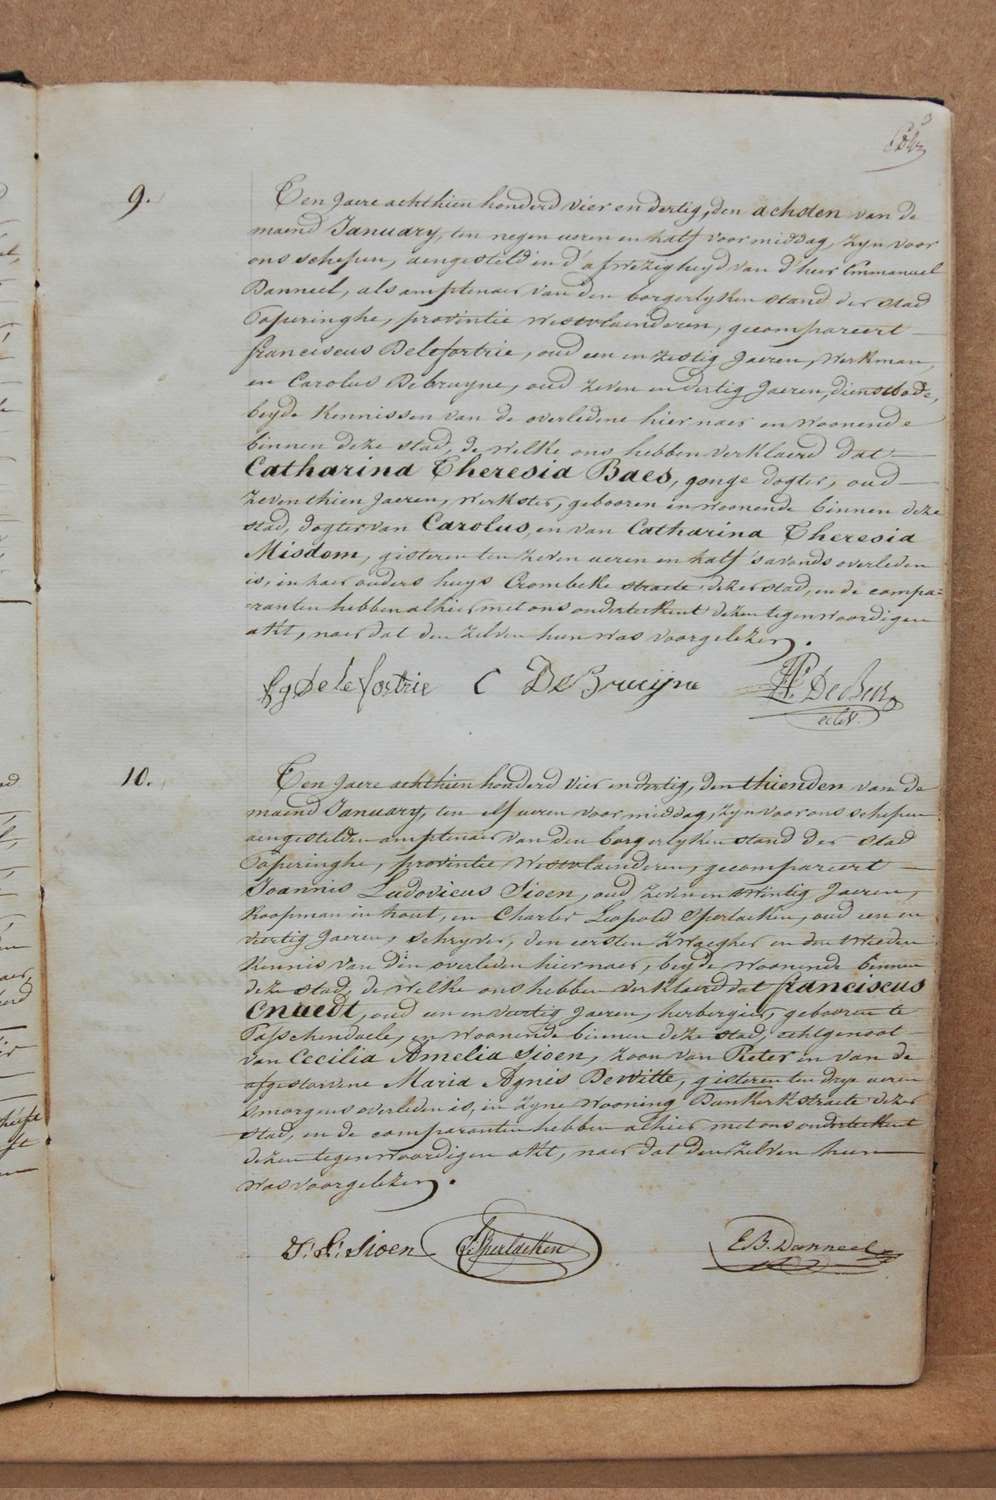 9.
Ten Jaere achthien honderd vier en dertig, den achsten van de
maend January, ten negen uren en half voormiddag, zyn voor
ons schepen, aengesteld in d'afwezigheyd van d'heer Emmanuel
Danneel, als amptenaer van den borgerlyken stand der stad
Poperinghe, provintie Westvlaenderen, gecompareert
franciscus Delefortrie, oud een en zestig Jaeren, werkman,
en Carolus Debruyne, oud zeven en dertig Jaeren, dienstbode,
beyde kennissen van de overledene hier naer en woonende
binnen deze stad, de welke ons hebben verklaerd dat
Catharina Theresia Baes, gonge dogter, oud
zeventhien Jaeren, werkster, gebooren en woonende binnen deze
stad, dogter van Carolus, en van Catharina Theresia
Misdom, gisteren ten zeven ueren en half s'avonds overleden
is, in haer ouders huys Crombeke straete dezer stad, en de compa-
ranten hebben alhier met ons onderteekent dezen tegenwoordigen
akt, naer dat den zelven hun was voorgelezen.
fg De le fortrie C DeBruyne
10.
Ten Jaere achthien honderd vier en dertig, den thienden van de
maend January, ten elf ueren voormiddag, zyn voor ons schepen
aengestelden amptenaer van den borgerlyken stand der stad
Poperinghe, provintie Westvlaenderen, gecompareert
Joannis Ludovicus Sioen, oud zeven en twintig Jaeren,
koopman in hout, en Charles Leopold Sperlaeken, oud een en
viertig Jaeren, schryver, den eersten zwaegher en den tweeden
kennis van den overleden hier naer, beyde woonende binnen
deze stad, de welke ons hebben verklaerd dat franciscus
Cnuedt, oud een en viertig Jaeren, herbergier, gebooren te
Passchendaele, en woonende binnen deze stad, echtgenoot
van Cecilia Amelia Sioen, zoon van Pieter en van de
afgestorvene Maria Agnes DeWitte, gisteren ten drye ueren
smorgens overleden is, in zyne wooning Dunkerkstraete dezer
stad, en de comparanten hebben alhier met ons onderteekent
dezen tegenwoordigen akt, naer dat den zelven hun
was voorgelezen.
Sioen C. Sperlaeken E.B. Danneel